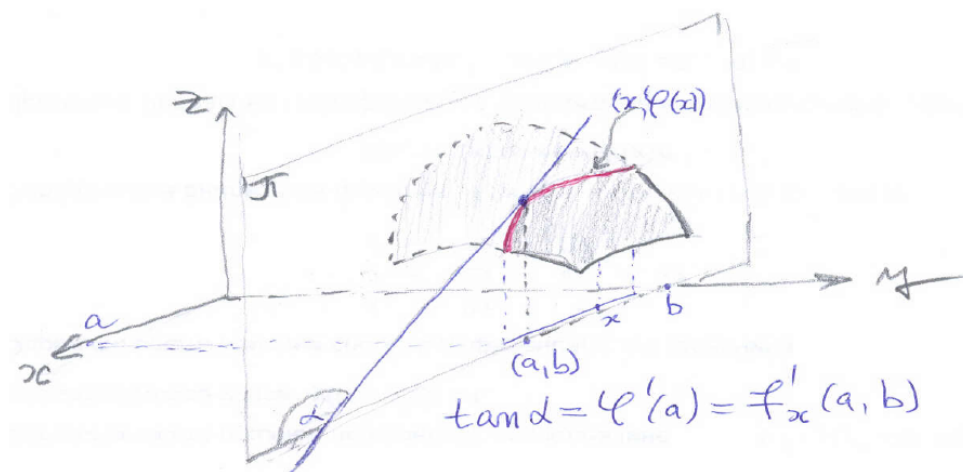 z
(x, φ(x))
π
a
x
y
b
x
(a,b)
α
tan α = φ'(a) = f'x (a, b)